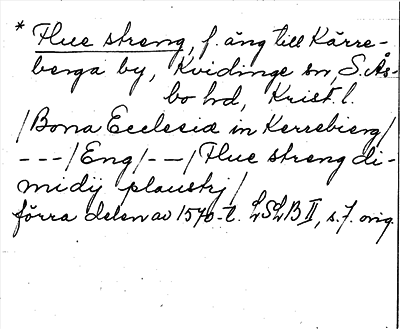 * Flue streng, f. äng till Kärre-
berga by, Kvidinge sn, S. Ås-
bo hd, Krist. l.
/Bona Ecclesiæ in Kerrebierg/
---/Eng/--/Flue streng di-
midij plaustrj/
förra delen av 1570-t. LSLB II, s. 7. orig.